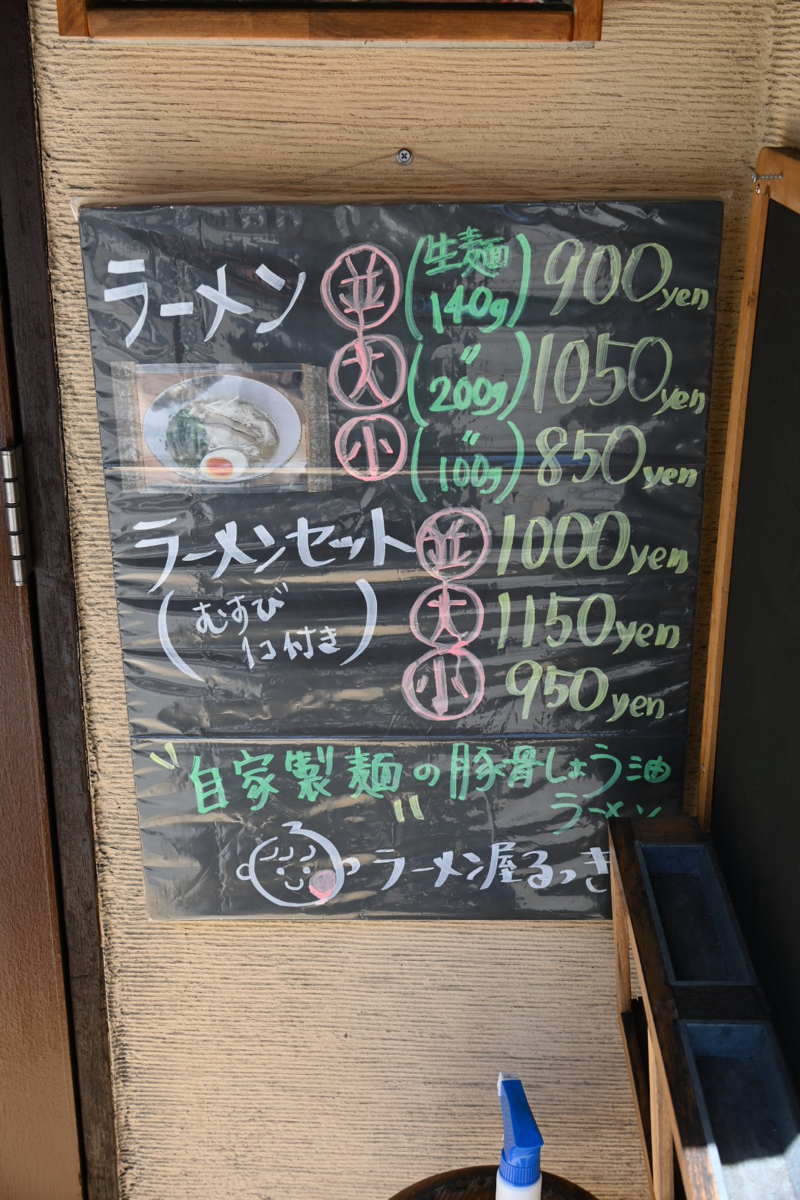 ラーメン 並 (生麺 140g) 900yen
大 (〃 200g) 1050yen
小 (〃 100g) 850yen
ラーメンセット 並 1000yen
(むすび 1コ付き) 大 1150yen
小 950yen
自家製麺の豚骨しょう油
ラーメン
ラーメン屋るっき